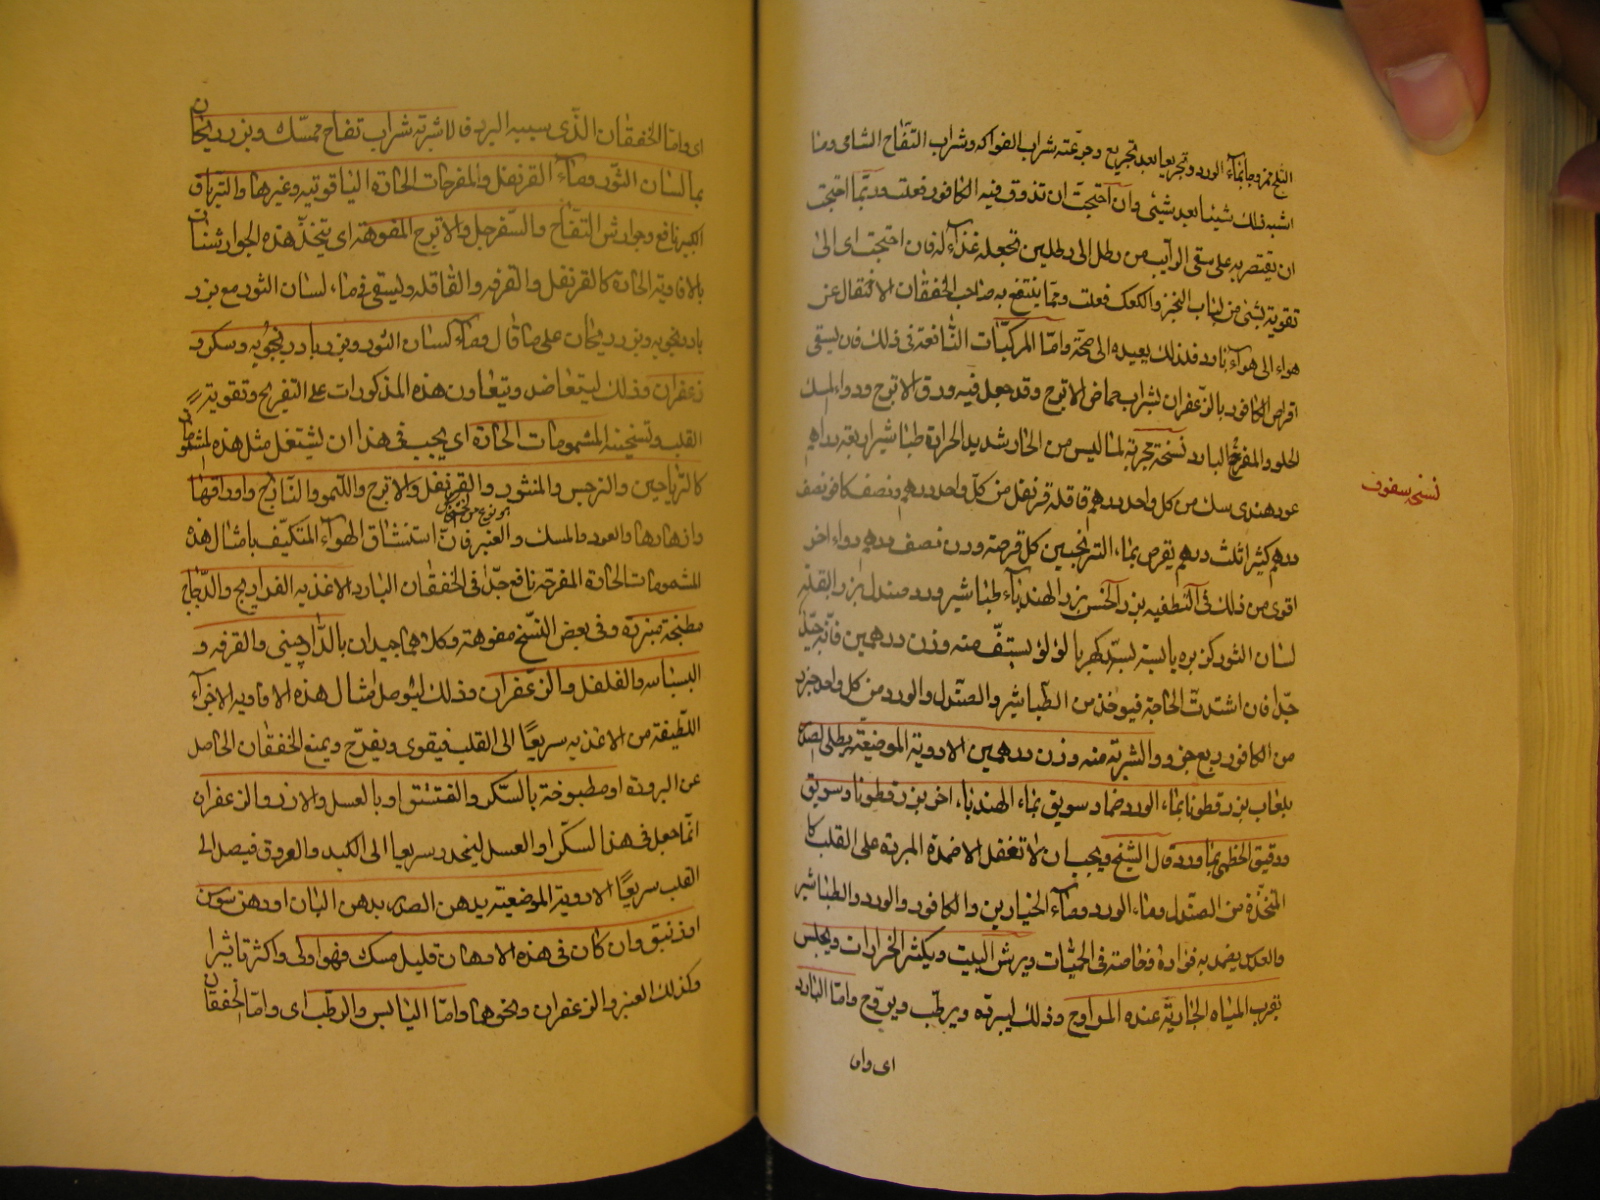 الثلج ممزوجا بماء الورد وتجريعا بعد تجريع وجرعته شراب الفواكه وشراب التفاح الشامى وما
اشبه ذلك شيئا بعد شيئى وان احتجت ان تذوق فيه الكافور فعلت وربما احتجت
ان يقتصر به على سقى الرايب من رطل الى رطلين تجعله غذاء له فان احتجت اى الى
تقوية بشئ من لباب الخبز والكعك فعلت ومما ينتفع به صاحب الخفقان الانتقال عن
هواء الى هواء بارد فذلك يعيده الى صحة واما المركبات النافعة فى ذلك فان يسقى
اقراص الكافور بالزعفران بشراب حماض الاترج وقد جعل فيه ورق الاترج ودواء المسك
الحلو والمفرح البارد نسخة مجربة لما ليس من الحار شديد الحرارة طباشير اربعة دراهم
عود هندى سك من كل واحد درهم قاقلة قرنفل من كل واحد درهم ونصف كافور نصف
درهم كثيرا ثلث درهم يقرص بماء الترنجبين كل قرصة وزن نصف درهم دواء اخر
اقوى من ذلك فى التطفيه بزر الخس بزر الهندباء طباشير ورد صندل بزر البقلة
لسان الثور كزبره يابسة بسد كهربا لؤلؤ يستف منه وزن درهمين فانه جيد
جدا فان اشتدت الحاجة فيوخذ من الطباشير والصندل والورد من كل واحد جزء
من الكافور ربع جزو والشربة منه وزن درهمين الادوية الموضعية يطلى الصدر
بلعاب بزر قطونا بماء الورد ضماد سويق بماء الهندباء اخر بزر قطونا وسويق
ودقيق الخطمى بماورد قال الشيخ ويجب ان لا تغفل الاضمدة المبردة على القلب كا
المتخذة من الصندل وماء الورد وماء الخيارين والكافور والورد والطباشير
والعدس يضمد به فؤاده وخاصة فى الحميات ويرش البيت ويكثر الخرارات ويجلس
بقرب المياه الجارية عنده المراوح وذلك ليبرده ويرطب ويروح واما البارد
اى واما
نسخه سفوف
اى واما الخفقان الذى سببه البرد فالاشربة شراب تفاح ممسك وبزر ريحان
بما لسان الثور وماء القرنفل والمفرحات الحارة الياقوتيه وغيرها والترياق
الكبير نافع وجوارش التفاح والسفرجل والاترج المفوهة اى يتخذ هذه الجوارشنات
بالافاوية الحارة كالقرنفل والقرفه والقاقله وليسقى فى ماء لسان الثور مع بزر
بادرنجويه وبزر ريحان على ما قال وماء لسان الثور وبزر بادرنجويه وسكر و
زعفران وذلك ليتعاضد ويتعاون هذه المذكورات على التفريح وتقوية
القلب وتسخينه المشمومات الحارة اى يجب فى هذا ان يشتغل مثل هذه المشمومات
كالرياحين والنرجس والمنثور والقرنفل والاترج واللیمو والنارنج واوراقها
وازهارها والعود والمسك والعنبر فان استنشاق الهواء المتكيف بامثال هذه
المشمومات الحارة المفرحة نافع جدا فى الخفقان البارد الاغذيه الفراريج والدجاج
مطنجة مبزرة وفى بعض النسخ مفوهة وكلاهما جيدان بالدارچينى والقرفه و
البسباسه والفلفل والزعفران وذلك ليوصل امثال هذه الافاويه الاجزاء
اللطيفة من الاغذيه سريعا الى القلب فيقوى ويفرح ويمنع الخفقان الحاصل
عن البرودة او مطبوخة بالسكر والفستق او بالعسل والارز والزعفران
انما جعل فى هذا السكر او العسل لينحدر سريعا الى الكبد والعروق فيصل الى
القلب سريعا الادوية الموضعية يدهن الصدر بدهن البان او دهن سوسن
او زنبق وان كان فى هذه الادهان قليل مسك فهو اولى واكثر تاثيرا
وكذلك العنبر والزعفران ونحوهما واما اليابس والرطب اى واما الخفقان